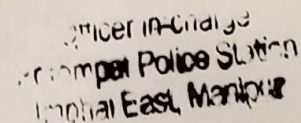 Officer in-Charge
Police Station
Imphal East, Manipur